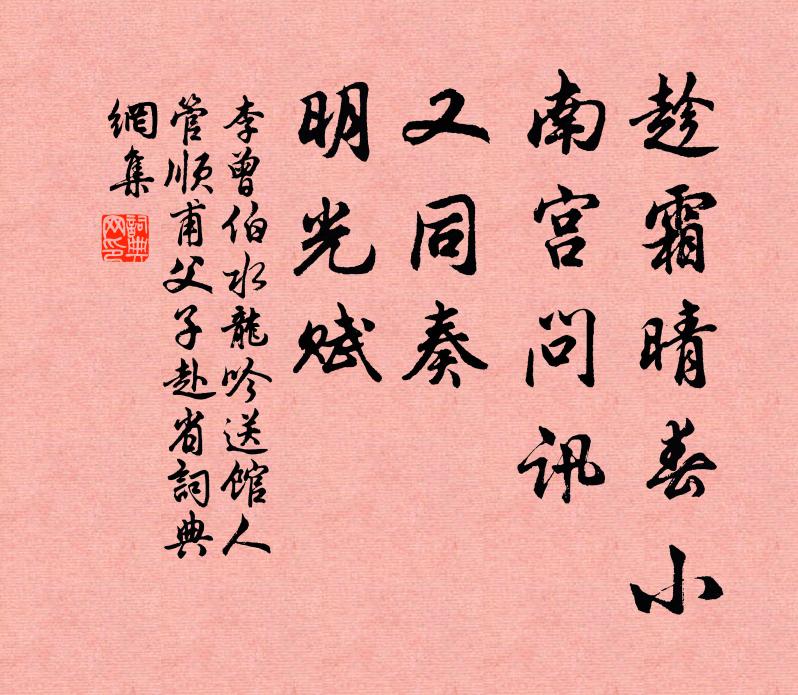 趁霜晴春小
南宫问讯
又同奏
明光赋
李曾伯水龍吟送館人
管順甫父子赴省詞典
網集
詞典
网印